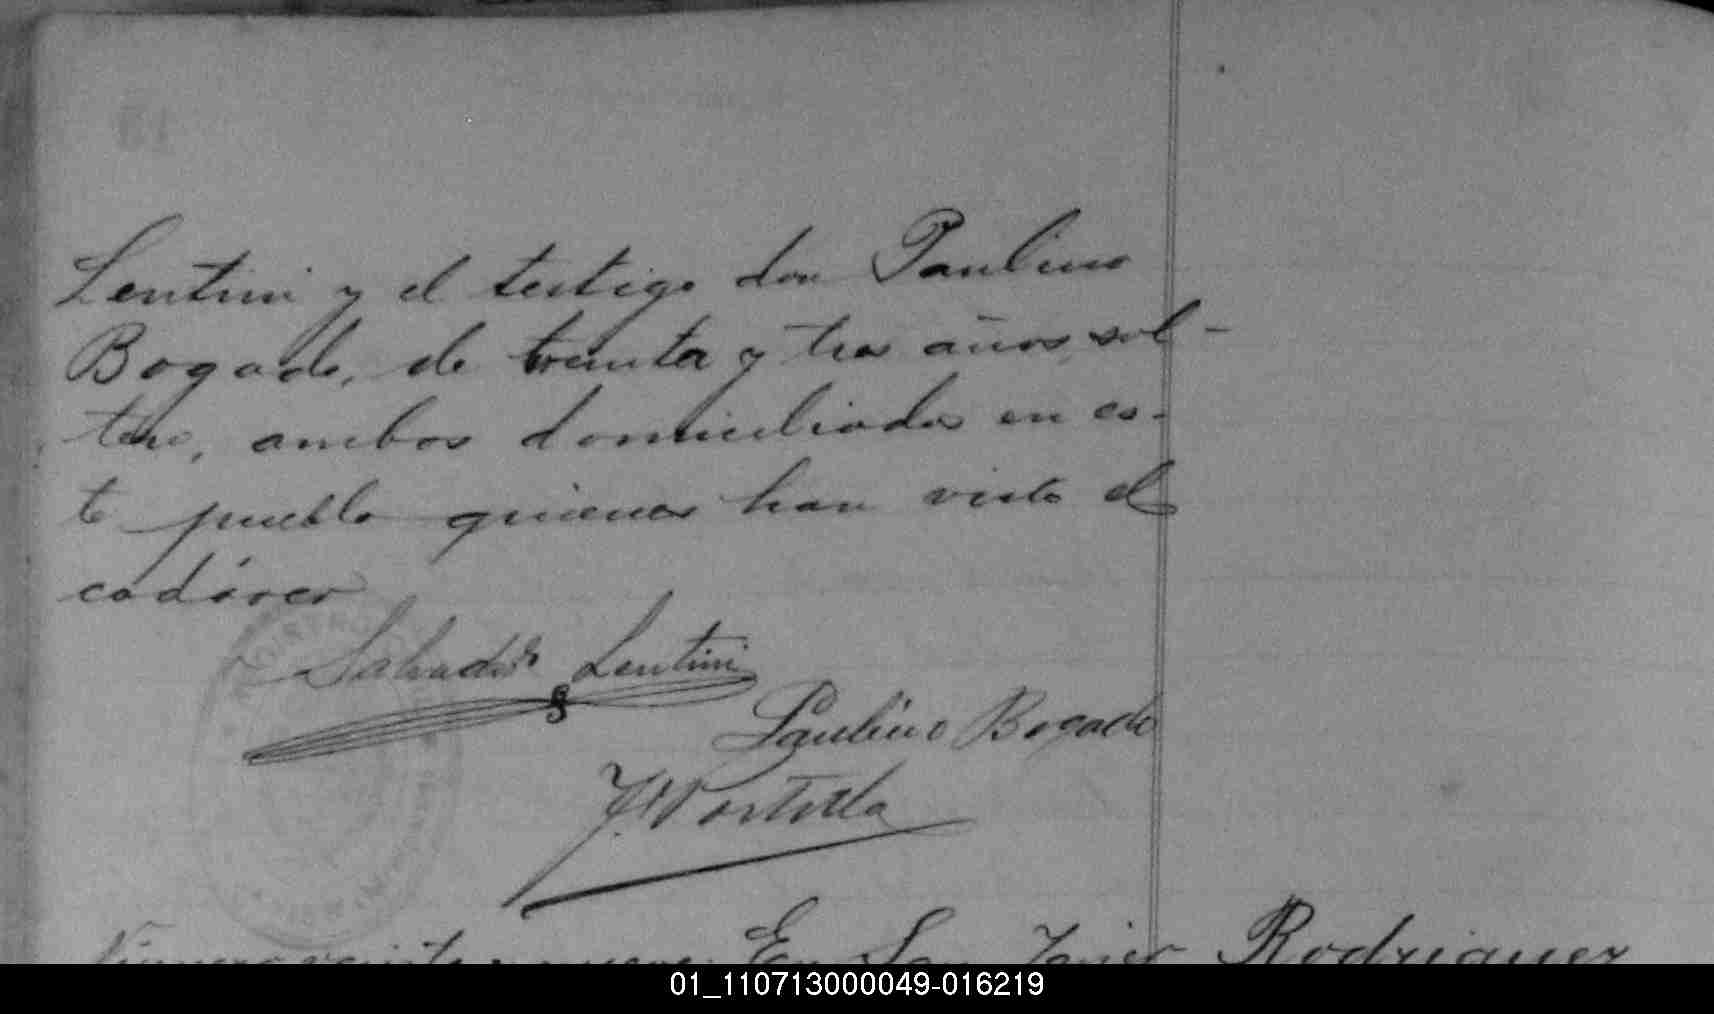 Lentini y el testigo don Paulino
Bogado, de treinta y tres años, sol-
tero, ambos domiciliados en es-
te pueblo quienes han visto el
cadáver
Salvador Lentini
Paulino Bogado
Portilla
Número veinte y nueve. En San Javier Rodriguez
01_110713000049-016219